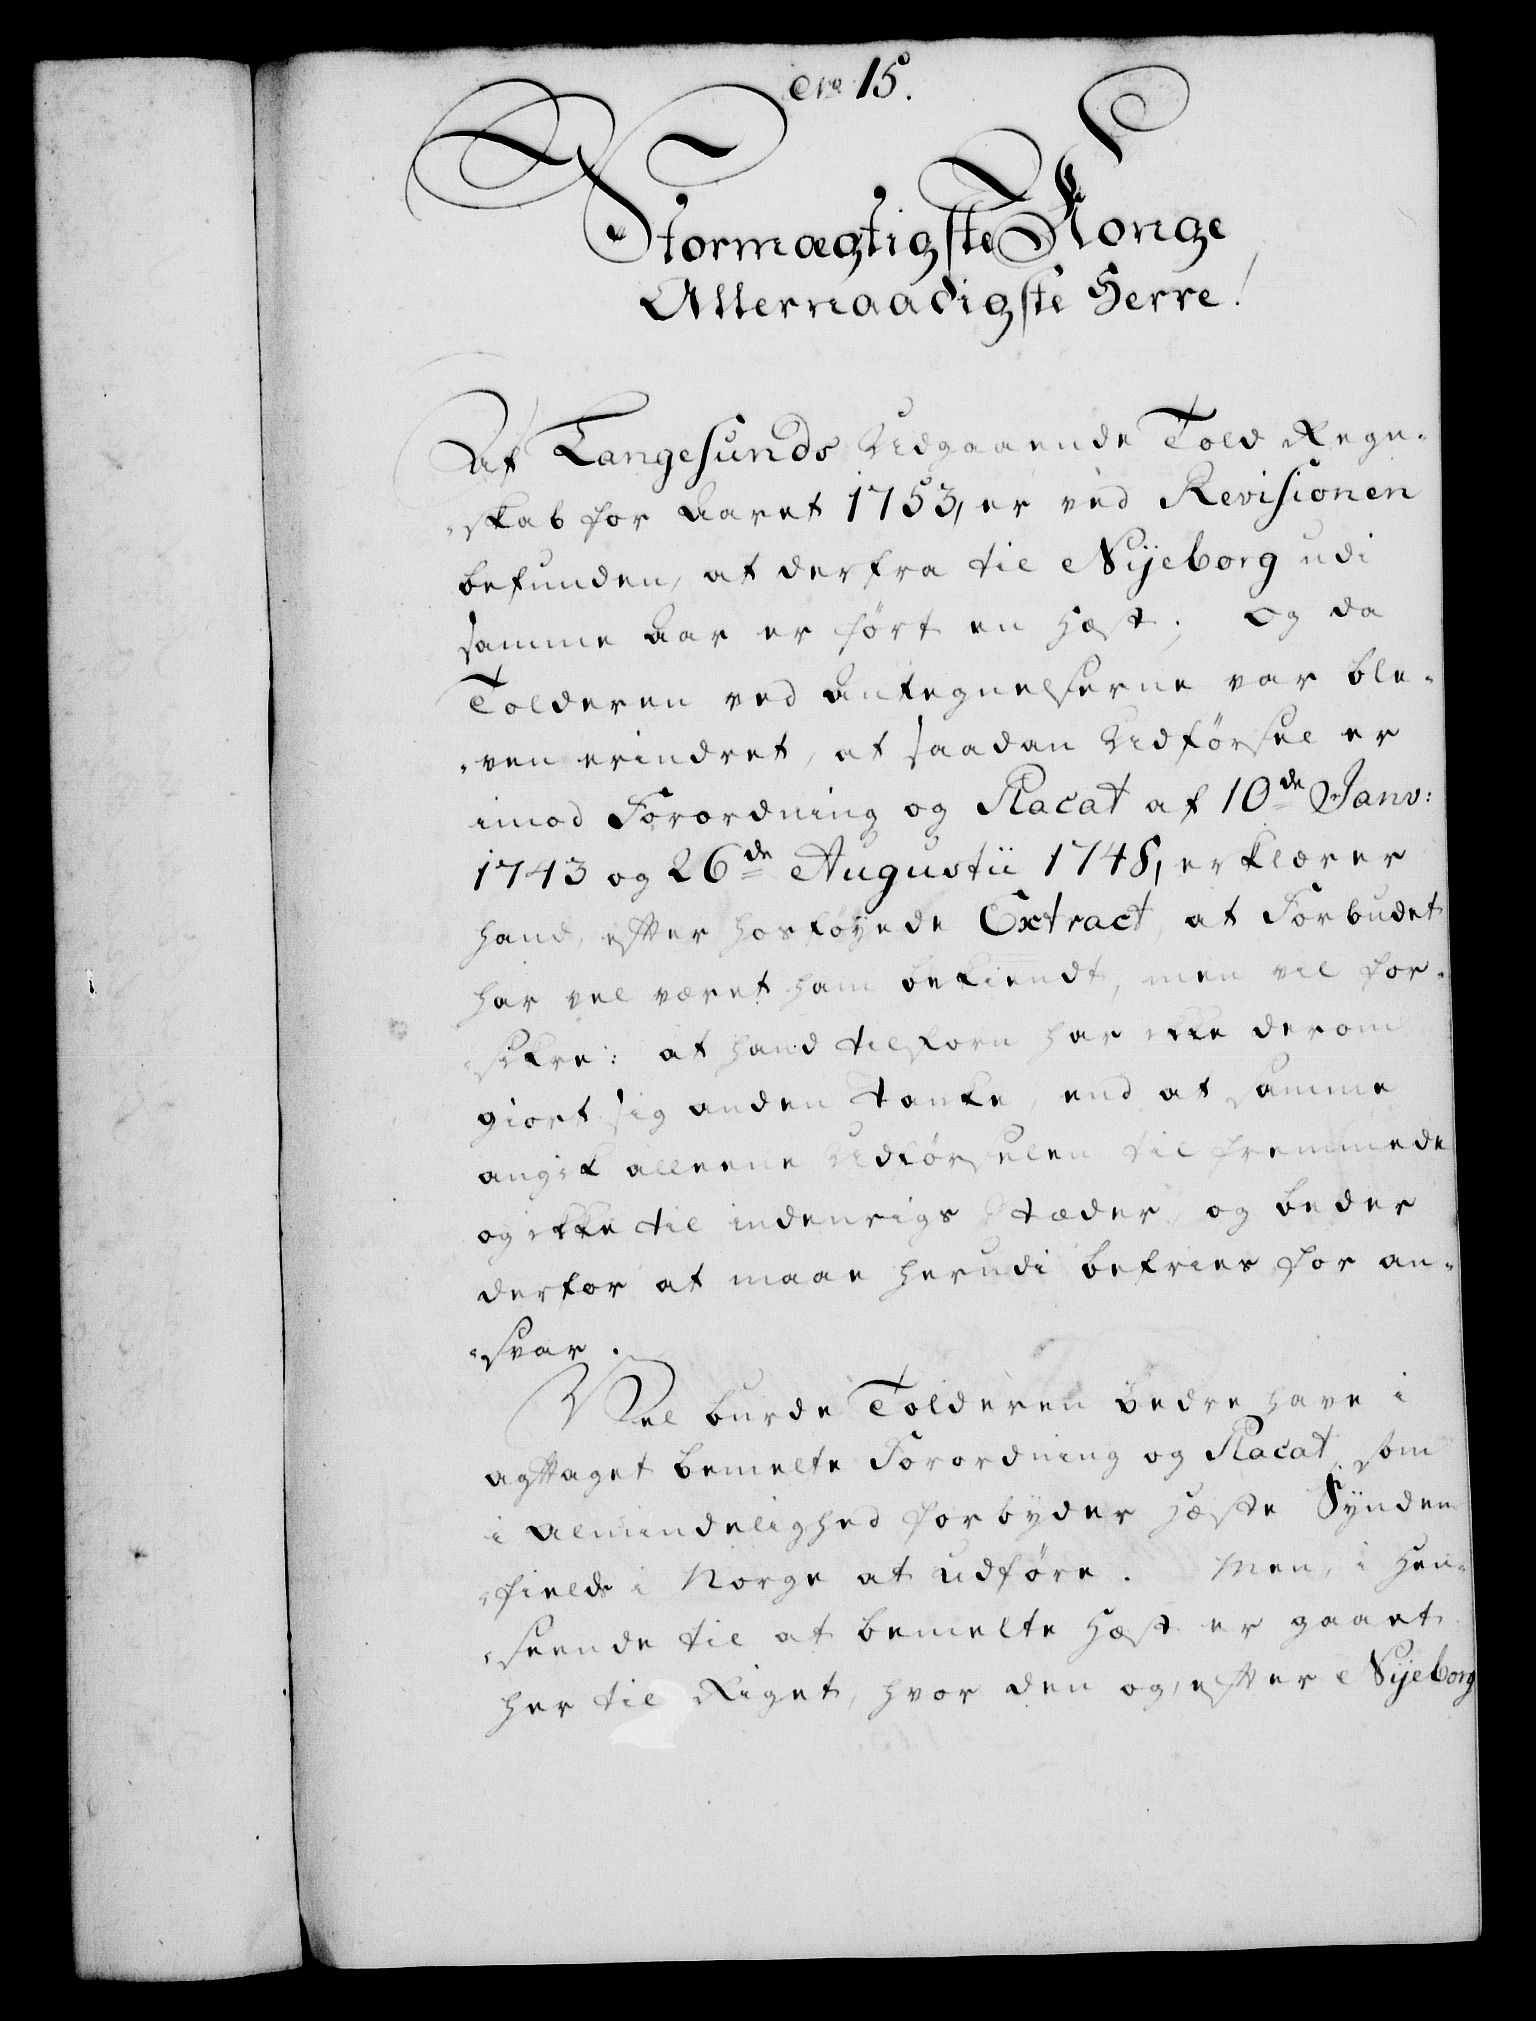 No 15.
Stormægtigste Konge
Allernaadigste Herre!
Af Langesunds Udgaaende Told Regn-
-skab for Aaret 1753, er ved Revisionen
befunden, at derfra til Nijeborg udi
samme Aar er ført en Hæst; Og da
Tolderen ved Antegnelserne var ble-
-ven erindret, at saadan Udførsel er
imod Forordning og Placat af 10de Janv:
1743 og 26de Augustii 1748, erklærer
hand, efter hosføyede Extract, at Forbudet
har vel været ham bekiendt, men vil for-
-sikre: at hand tilforn har ikke derom
giort sig anden Tanke, end at samme
angik alleene Udførselen til fremmede
og ikke til indenrigs Stæder, og beder
derfor at maae herudi befries for an-
-svar.
Vel burde Tolderen bedre have i
agttaget bemelte Forordning og Placat, som
i Almindelighed forbyder Hæste Synden-
-fields i Norge at udføre. Men, i Hen-
-seende til at bemelte Hæst er gaaet
her til Riget, hvor den og, efter Nijeborg